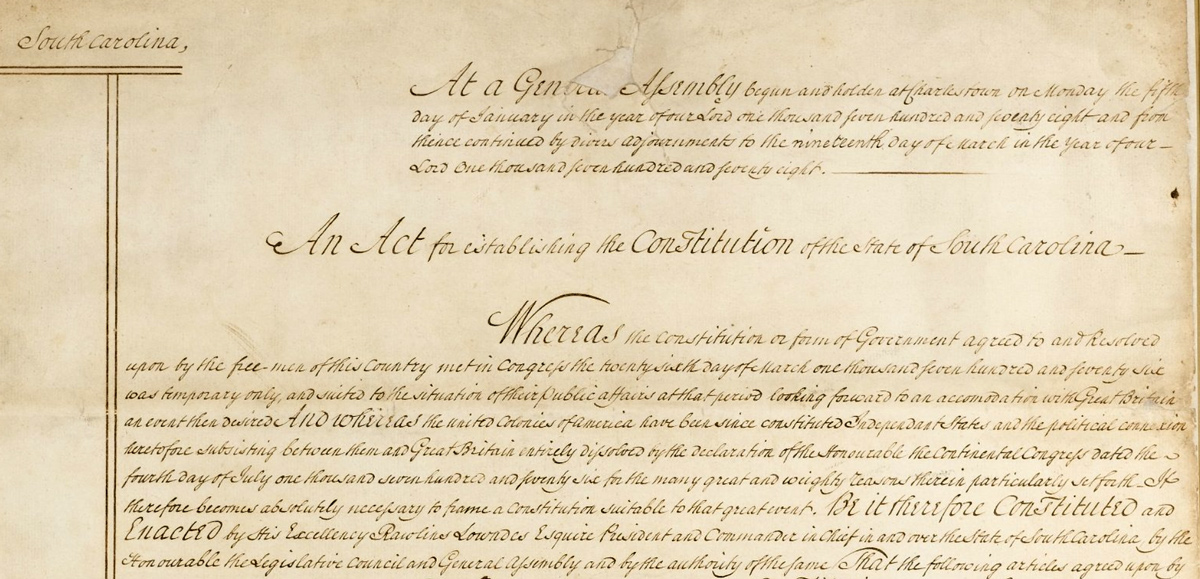 South Carolina,
At a General Assembly begun and holden at Charlestown on Monday the fifth
day of January in the year of our Lord one thousand seven hundred and seventy eight and from
thence continued by divers adjournments to the nineteenth day of March in the year of our
Lord One thousand seven hundred and seventy eight.
An Act for establishing the Constitution of the State of South Carolina
Whereas the Constitution or form of Government agreed to and Resolved
upon by the free-men of this Country met in Congress the twenty sixth day of March one thousand seven hundred and seventy six
was temporary only, and suited to the situation of their Public affairs at that period looking forward to an accomodation with Great Britain
an event then desired And whereas the united Colonies of america have been since constituted Independant States and the political connexion
heretofore subsisting between them and Great Britain entirely dissolved by the declaration of the Honourable the Continental Congress dated the
fourth day of July one thousand seven hundred and seventy six for the many great and weighty reasons therein particularly set forth — It
therefore becomes absolutely necessary to frame a Constitution suitable to that great event. Be it therefore Constituted and
Enacted by His Excellency Rawlins Lowndes Esquire President and Commander in Chief in and over the State of South Carolina, by the
Honourable the Legislative Council and General Assembly and by the authority of the same That the following articles agreed upon by